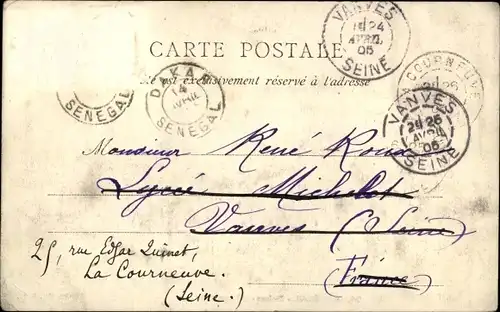 VANVES
24
AVRIL
05
SEINE
CARTE POSTALE
Ce est exclusivement réservé à l'adresse
DAKAR
14
AVRIL
SENEGAL
SENEGAL
LA COURNEUVE
26
VANVES
26
AVRIL
05
SEINE
Monsieur René
Lycée Michelet
Vanves (Seine)
France
25, rue Edgar Quinet,
La Courneuve.
(Seine.)